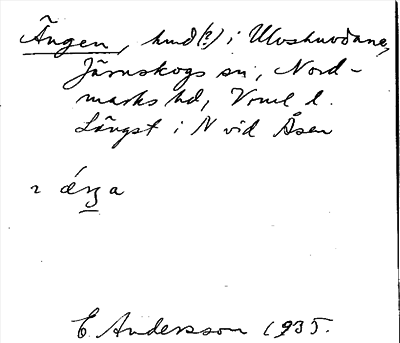 Ängen, hmd(?) i Ulvshuvudane,
Järnskogs sn, Nord-
marks hd, Vrml l.
Längst i N vid Åsen
2 ǽŋa
E. Andersson 1935.